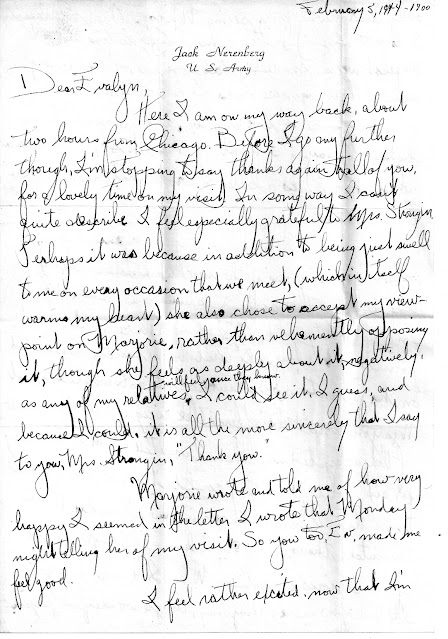 February 5, 1944 - 1900
Jack Nerenberg
U. S. Army
Dear Evalyn,
Here I am on my way back, about
two hours from Chicago. Before I go any further
though, I'm stopping to say thanks again to all of you,
for a lovely time on my visit. In some way I can't
quite describe I feel especially grateful to Mrs. Strongin
Perhaps it was because in addition to being just swell
to me on every occasion that we meet, (which in itself
warms my heart) she also chose to accept my view-
point on Marjorie, rather than vehemently opposing
it, though she feels as deeply about it, negatively,
as any of my relatives will once they know. I could see it, I guess, and
because I could, it is all the more sincerely that I say
to you, Mrs. Strongin, "Thank you."
Marjorie wrote and told me of how very
happy I seemed in the letter I wrote that Monday
night telling her of my visit. So you too, Ev, made me
feel good.
I feel rather excited, now that I'm